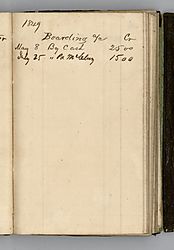 1849
Boarding a/c Cr
May 8 By Cash 25 00
July 25 " Pr 15 00